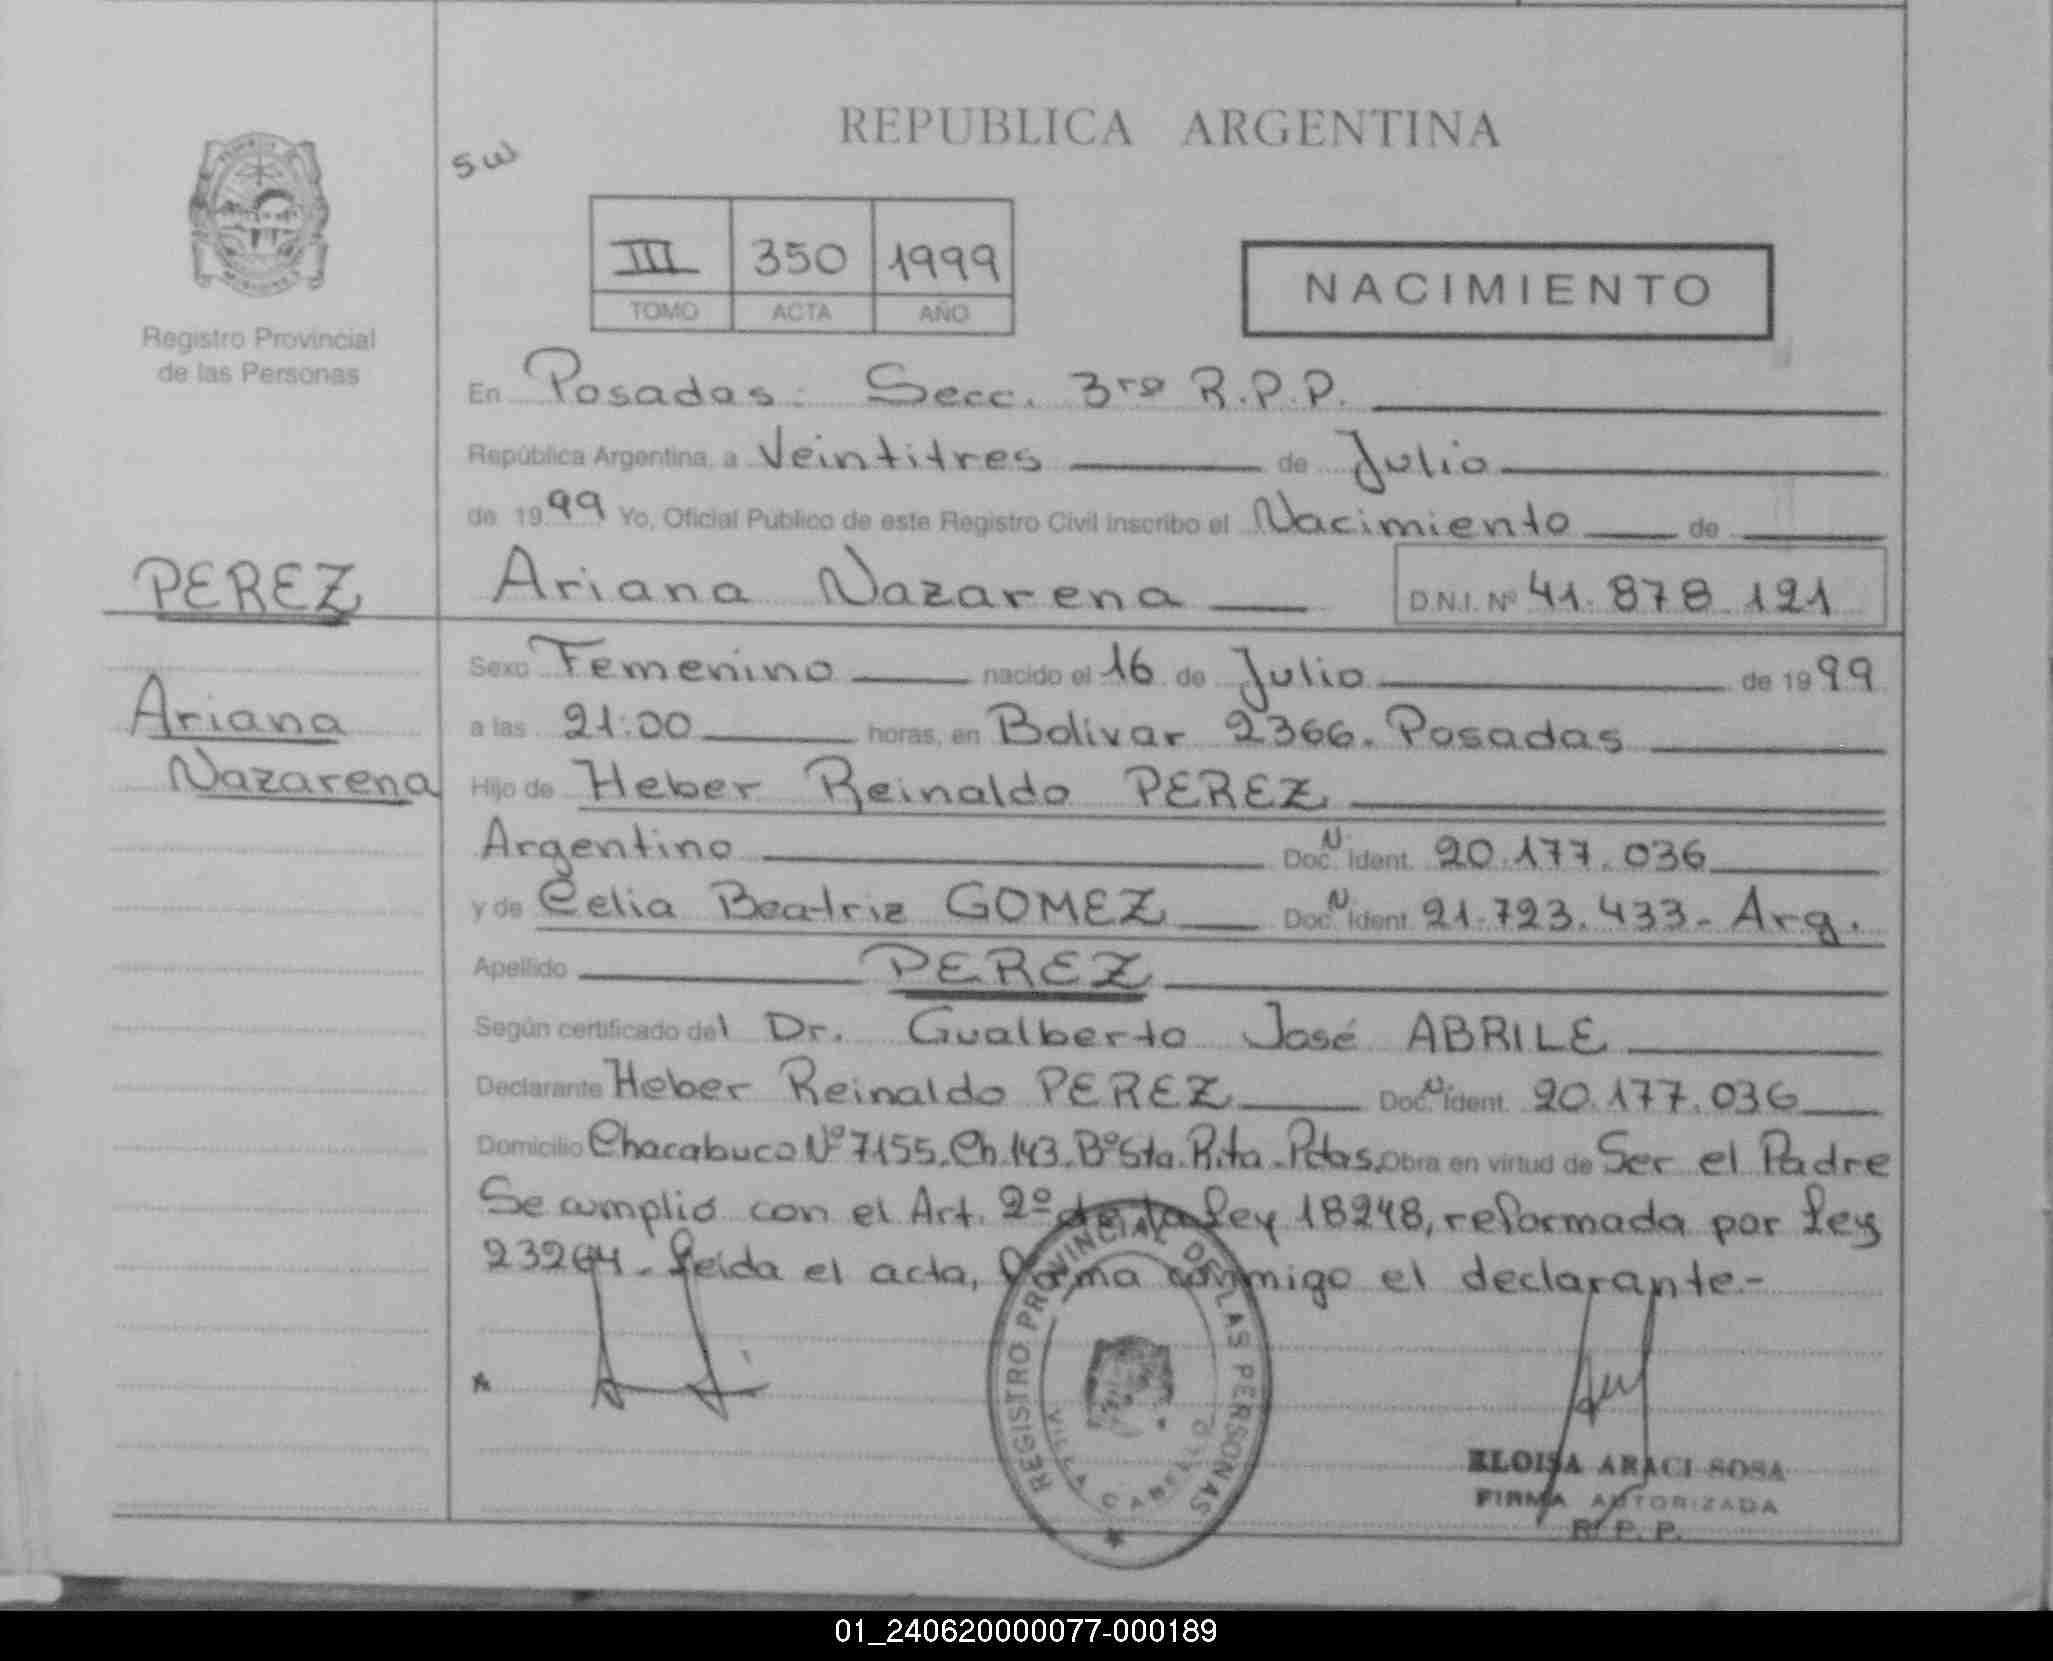 REPUBLICA ARGENTINA
SW
III 350 1999
TOMO ACTA AÑO
NACIMIENTO
Registro Provincial
de las Personas
En Posadas. Secc. 3ra R.P.P.
República Argentina, a Veintitres de Julio
de 1999 Yo, Oficial Público de este Registro Civil inscribo el Nacimiento de
PEREZ
Ariana Nazarena D.N.I. Nº 41.878.121
Sexo Femenino nacido el 16 de Julio de 1999
Ariana
Nazarena
a las 21:00 horas, en Bolivar 2366. Posadas
Hijo de Heber Reinaldo PEREZ
Argentino Doc. N Ident. 20.177.036
y de Celia Beatriz GOMEZ Doc. N Ident. 21.723.433- Arg.
Apellido PEREZ
Según certificado del Dr. Gualberto José ABRILE
Declarante Heber Reinaldo PEREZ Doc. N Ident. 20.177.036
Domicilio Chacabuco Nº 7155. Ch. 143. Bº Sta. Rita. Pdas. Obra en virtud de Ser el Padre
Se cumplió con el Art. 2º de la Ley 18248, reformada por Ley
23264. Leída el acta, forma conmigo el declarante.-
REGISTRO PROVINCIAL DE LAS PERSONAS
VILLA CABELLO
ELOISA ARACI SOSA
FIRMA AUTORIZADA
R. P. P.
01_240620000077-000189